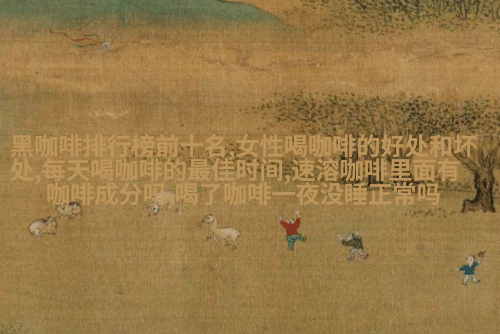 黑咖啡排行榜前十名,女性喝咖啡的好处和坏
处,每天喝咖啡的最佳时间,速溶咖啡里面有
咖啡成分吗,喝了咖啡一夜没睡正常吗